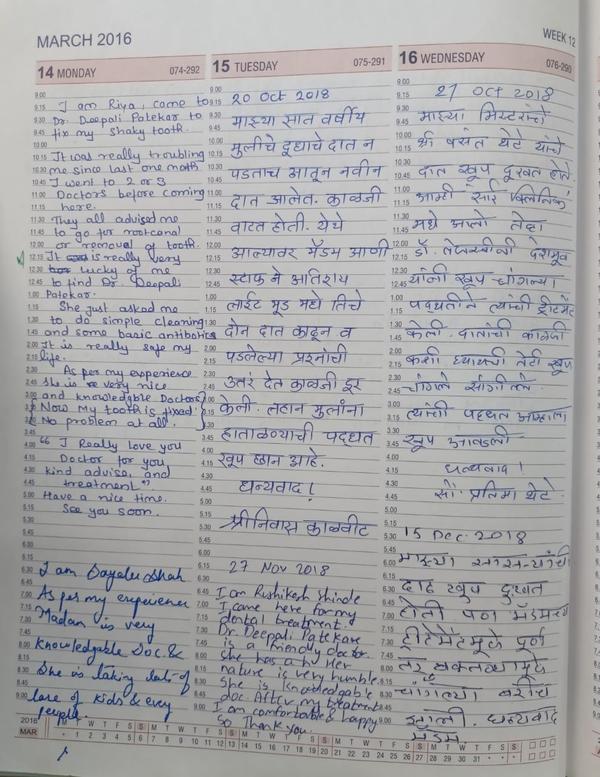 MARCH 2016
WEEK 12
14 MONDAY 074-292
I am Riya, came to
Dr. Deepali Patekar to
fix my shaky tooth.
It was really troubling
me since last one month
I went to 2 or 3
Doctors before coming
here.
They all advised me
to go for rootcanal
or removal of tooth.
It is really very
lucky of me
to find Dr. Deepali
Patekar.
She just asked me
to do simple cleaning
and some basic antibotics
It is really safe my
life.
As per my experience
She is very nice
and knowledgable Doctor
Now My tooth is fixed
No problem at all.
"I Really love you
Doctor for your
kind advise, and
treatment"
Have a nice time.
See you soon.
I am Dayalu Shah
As per my experience
Madam is very
Knowledgable Doc. &
She is taking lot of
Care of Kids & every
people.
15 TUESDAY 075-291
20 Oct 2018
माझ्या सात वर्षीय
मुलीचे दूधाचे दात न
पडताच आतून नवीन
दात आलेत. काळजी
वाटत होती. येथे
आल्यावर मॅडम आणी
स्टाफ ने अतिशय
लाईट मूड मधे तिचे
दोन दात काढून व
पडलेल्या प्रश्नांची
उत्तरं देत काळजी दूर
केली. लहान मुलांना
हाताळण्याची पद्धत
खूप छान आहे.
धन्यवाद!
श्रीनिवास काळवीट
27 Nov 2018
I am Rushikesh Shinde
I came here for my
dental treatment.
Dr. Deepali Patekare
is a friendly doctor.
She has a Her
nature is very humble.
She is knowledgable
doc. After my treatment
I am comfortable & happy
So Thank you.
16 WEDNESDAY 076-290
27 Oct 2018
माझ्या मिस्टरांचे
श्री वसंत थेटे यांचे
दात खूप दुखत होते.
आम्ही साई क्लिनिक
मधे आलो तेव्हा
डॉ. तेजस्वीनी देशमुख
यांनी खूप चांगल्या
पध्दतीने त्यांची ट्रीटमेंट
केली. दातांची काळजी
कशी घ्यायची तेही खूप
चांगले सांगीतले.
त्यांची पध्दत आम्हाला
खूप आवडली
धन्यवाद!
सौ. प्रतिमा थेटे.
15 Dec. 2018
माझ्या सास-यांची
दाढ खुप दुखत
होती पण मॅडमच्या
ट्रीटमेंटमुळे पूर्ण
चांगल्या बरीच
झाली. धन्यवाद
मॅडम
2016
MAR
M T W T F S S M T W T F S S M T W T F S S M T W T F S S M T W T F S S
1 2 3 4 5 6 7 8 9 10 11 12 13 14 15 16 17 18 19 20 21 22 23 24 25 26 27 28 29 30 31